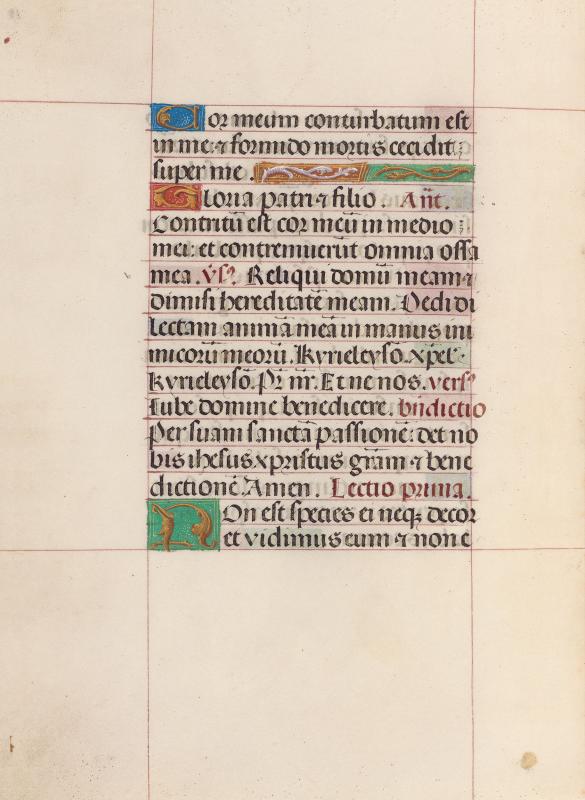 Cor meum conturbatum est
in me: ⁊ formido mortis cecidit
super me.
Gloria patri ⁊ filio. Añt.
Contritū est cor meū in medio
mei: et contremuerūt omnia ossa
mea. vs̄. Reliqui domū meam ⁊
dimisi hereditatē meam. Dedi di
lectam animā meā in manus ini
micorū meorū. Kyrieleysō. xp̄el.
Kyrieleysō. Pr̄ nr̄. Et ne nos. vers̄
Iube domine benedicere. bn̄dictio
Per suam sanctā passionē: det no
bis ihesus xpristus grām ⁊ bene
dictionē. Amen. Lectio prima.
NOn est species ei neqꝫ decor
et vidimus eum ⁊ non e